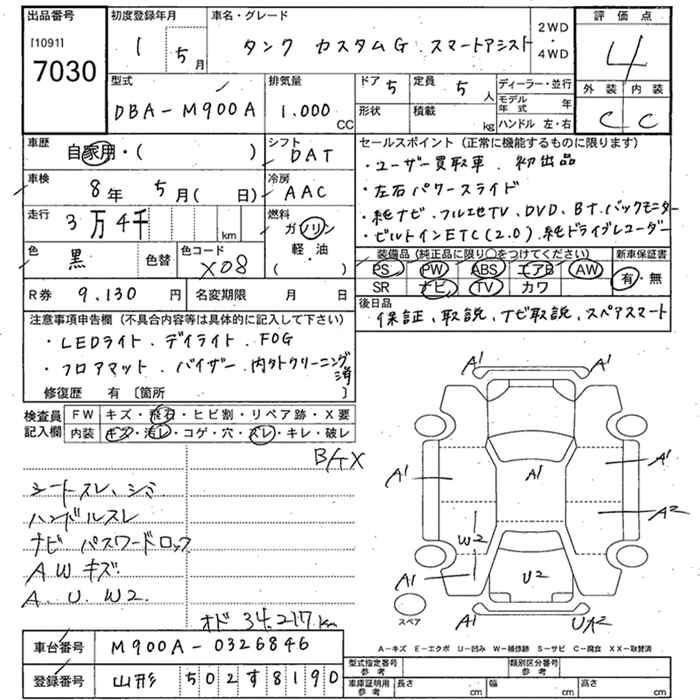 出品番号
[1091]
7030
初度登録年月
1 5月
車名・グレード
タンク カスタムG.スマートアシスト
2WD・4WD
評価点
4
外装 内装
C C
型式
DBA-M900A
排気量
1.000 CC
ドア 5
定員 5人
形状
積載 kg
ディーラー・並行
モデル年式 年
ハンドル 左・右
車歴
自家用・( )
シフト
DAT
車検
8年 5月( 日)
冷房
AAC
走行
3万4千 km
燃料
ガソリン
軽・油
( )
色
黒
色替
色コード
X08
R券 9.130円
名変期限 月 日
セールスポイント(正常に機能するものに限ります)
・ユーザー買取車.初出品
・左右パワースライド
・純ナビ.フルセTV、DVD、BT.バックモニター
・ビルトインETC(2.0).純ドライブレコーダー
装備品(純正品に限り○をつけてください)
PS PW ABS エアB AW
SR ナビ TV カワ
新車保証書
有・無
後日品
保証、取説、ナビ取説、スペアスマート
注意事項申告欄(不具合内容等は具体的に記入して下さい)
・LEDライト.デイライト.FOG
・フロアマット.バイザー.内外クリーニング済
修復歴 有〔箇所 〕
検査員記入欄
FW キズ・飛石・ヒビ割・リペア跡・X要
内装 キズ・汚レ・コゲ・穴・スレ・キレ・破レ
シートスレ、シミ
ハンドルスレ
ナビ パスワードロック
AWキズ
A.U.W2.
オド 34.217km
A1 A1
A1 A1 A1
A2
W2
A1 U2
A1 UA2
スペア
A-キズ E-エクボ U-凹み W-補修跡 S-サビ C-腐食 XX-取替済
車台番号 M900A-0326846
登録番号 山形 502す8190
型式指定番号 参考
類別区分番号 参考
車庫証明用 参考
長さ cm
幅 cm
高さ cm